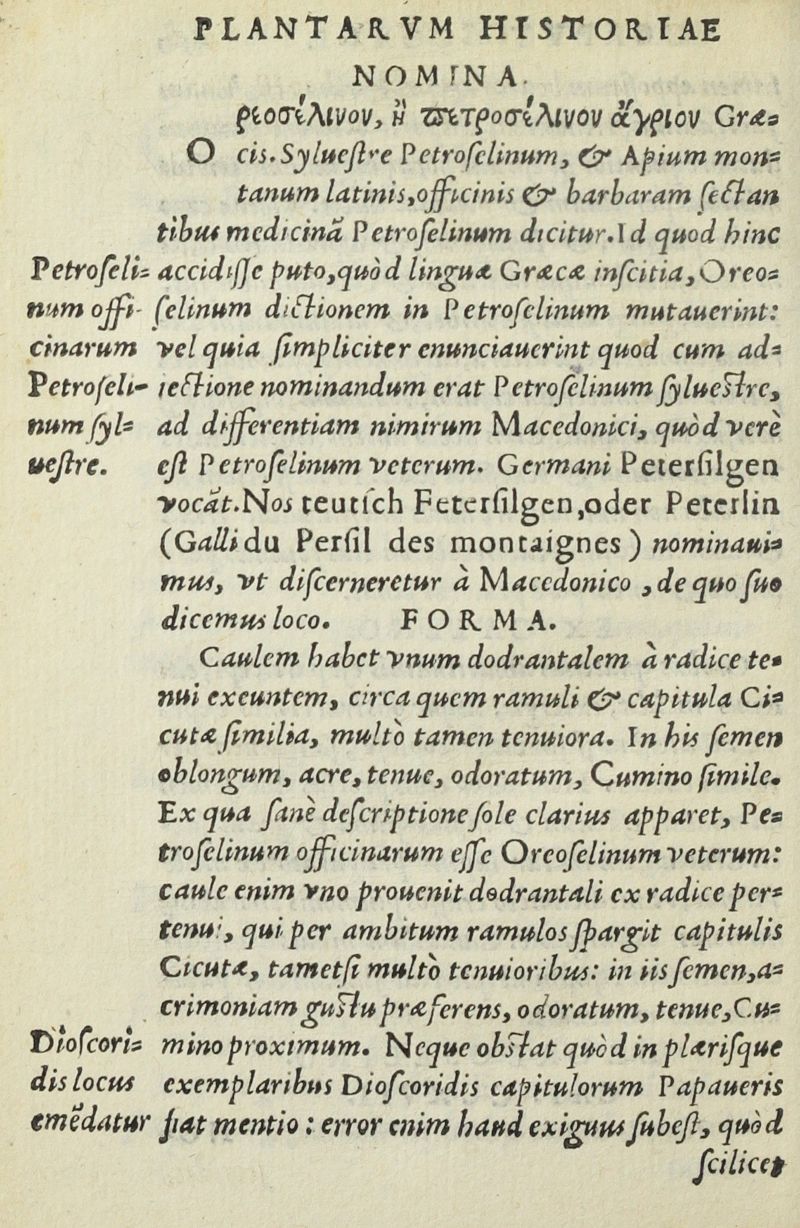 PLANTARVM HISTORIAE
NOMINA.
O ρεοσέλινον, ἢ πετροσέλινον ἄγριον Græ=
cis. Syluestre Petroſelinum, & Apium mon=
tanum latinis, officinis & barbaram ſectan
tibus medicinã Petroſelinum dicitur. Id quod hinc
accidiſſe puto, quòd linguæ Græcæ inſcitia, Oreo=
ſelinum dictionem in Petroſelinum mutauerint:
vel quia ſimpliciter enunciauerint quod cum ad=
iectione nominandum erat Petroſelinum ſylueſtre,
ad differentiam nimirum Macedonici, quòd verè
eſt Petroſelinum veterum. Germani Peterſilgen
vocãt. Nos teutſch Feterſilgen, oder Peterlin
(Galli du Perſil des montaignes) nominaui=
mus, vt diſcerneretur à Macedonico, de quo ſuo
dicemus loco. FORMA.
Caulem habet vnum dodrantalem à radice te=
nui exeuntem, circa quem ramuli & capitula Ci=
cutæ ſimilia, multò tamen tenuiora. In his ſemen
oblongum, acre, tenue, odoratum, Cumino ſimile.
Ex qua ſanè deſcriptione ſole clarius apparet, Pe=
troſelinum officinarum eſſe Oreoſelinum veterum:
caule enim vno prouenit dodrantali ex radice per=
tenui, qui per ambitum ramulos ſpargit capitulis
Cicutæ, tametſi multò tenuioribus: in iis ſemen, a=
crimoniam guſtu præferens, odoratum, tenue, Cu=
mino proximum. Neque obſtat quòd in plæriſque
exemplaribus Dioſcoridis capitulorum Papaueris
fiat mentio: error enim haud exiguus ſubeſt, quòd
ſcilicet
Petroſeli=
num offi-
cinarum
Petroſeli-
num ſyl=
ueſtre.
Dioſcori=
dis locus
emẽdatur